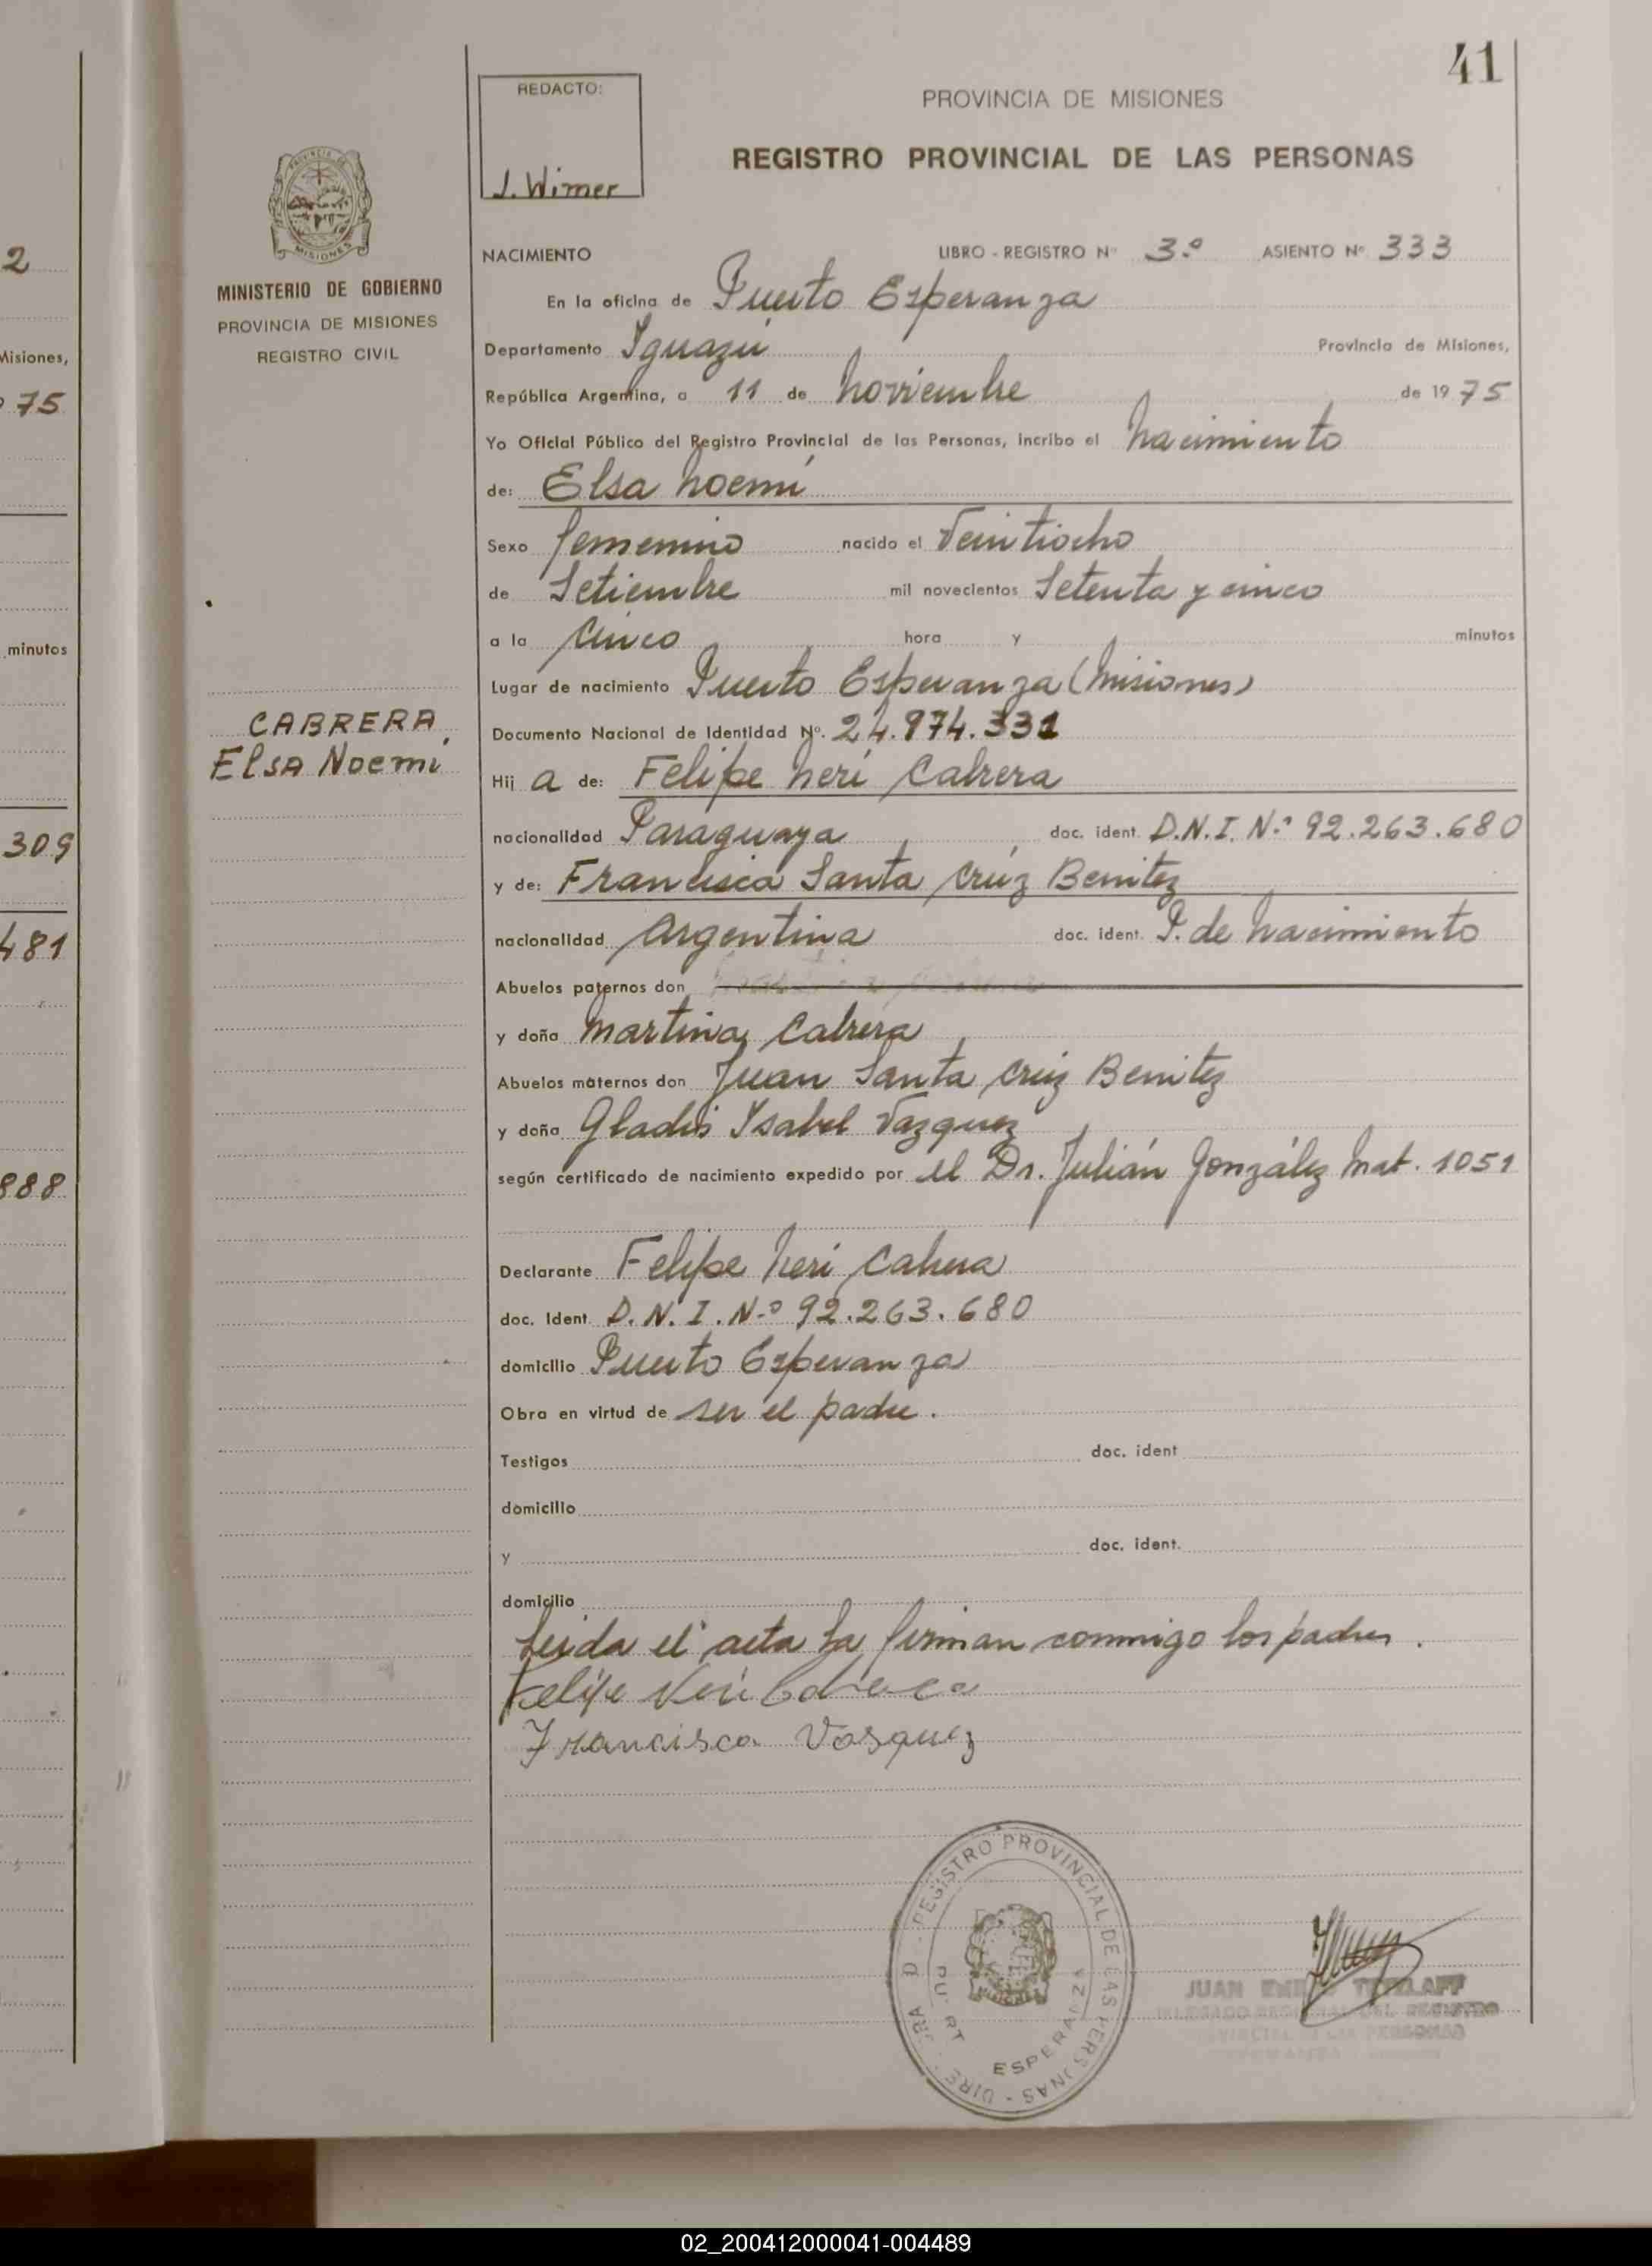 41
REDACTO:
J. Wimer
PROVINCIA DE MISIONES
REGISTRO PROVINCIAL DE LAS PERSONAS
MINISTERIO DE GOBIERNO
PROVINCIA DE MISIONES
REGISTRO CIVIL
NACIMIENTO LIBRO - REGISTRO Nº 3º ASIENTO Nº 333
En la oficina de Puerto Esperanza
Departamento Iguazú Provincia de Misiones,
República Argentina, a 11 de noviembre de 1975
Yo Oficial Público del Registro Provincial de las Personas, incribo el nacimiento
de: Elsa Noemí
Sexo femenino nacido el Veintiocho
de Setiembre mil novecientos Setenta y cinco
a la Cinco hora y minutos
Lugar de nacimiento Puerto Esperanza (Misiones)
CABRERA
Elsa Noemí
Documento Nacional de Identidad Nº. 24.974.331
Hij a de: Felipe Neri Cabrera
nacionalidad Paraguaya doc. ident. D.N.I. Nº 92.263.680
y de: Francisca Santa Crúz Benitez
nacionalidad Argentina doc. ident. P. de nacimiento
Abuelos paternos don
y doña Martina Cabrera
Abuelos maternos don Juan Santa Cruz Benitez
y doña Gladis Ysabel Vazquez
según certificado de nacimiento expedido por el Dr. Julián González Mat. 1051
Declarante Felipe Neri Cabrera
doc. Ident. D.N.I. Nº 92.263.680
domicilio Puerto Esperanza
Obra en virtud de ser el padre.
Testigos doc. ident
domicilio
y doc. ident.
domicilio
Leida el acta la firman conmigo los padres.
Felipe Neri Cabrera
Francisca Vasquez
REGISTRO PROVINCIAL DE LAS PERSONAS
ESPERANZA
MISIONES
JUAN
REGISTRO
PERSONAS
2
Misiones,
75
minutos
309
481
888
02_200412000041-004489